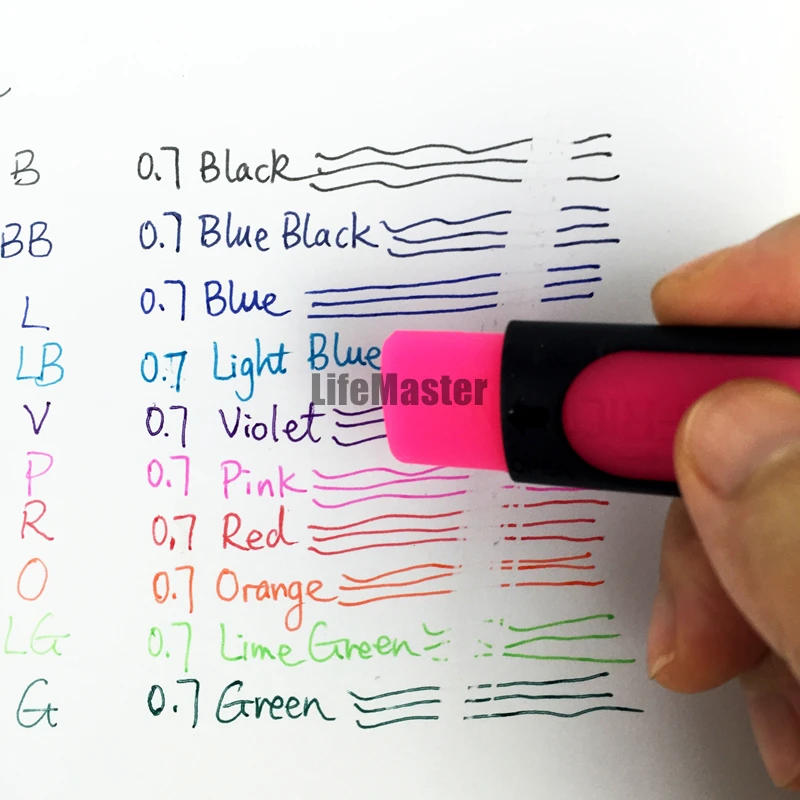 B 0.7 Black
BB 0.7 Blue Black
L 0.7 Blue
LB 0.7 Light Blue
LifeMaster
V 0.7 Violet
P 0.7 Pink
R 0.7 Red
O 0.7 Orange
LG 0.7 Lime Green
G 0.7 Green